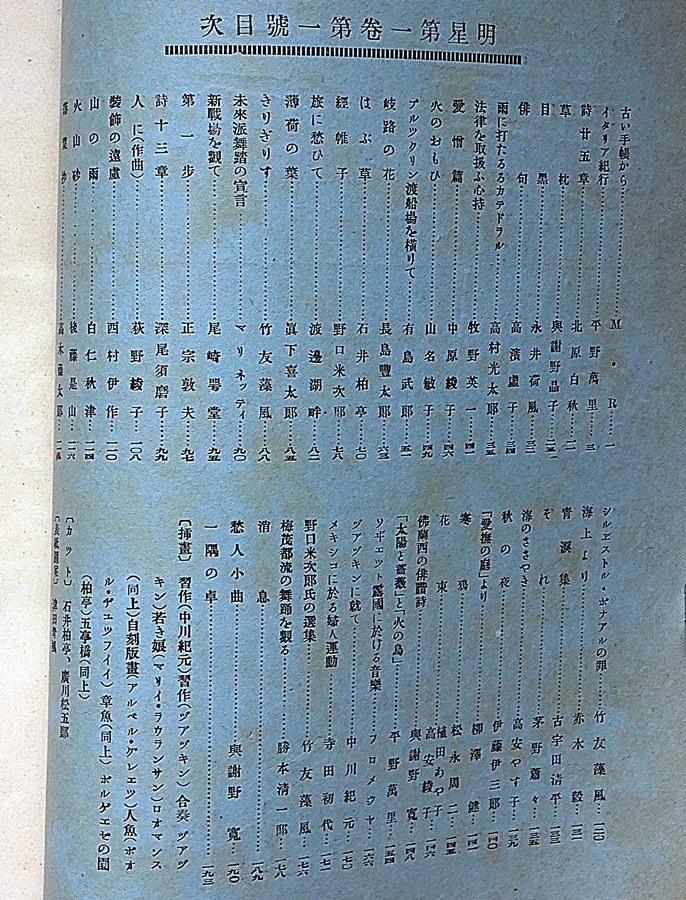 明星第一卷第一號目次
古い手帳から……M・R……一
イタリア紀行……平野萬里……三
詩廿五章……北原白秋……二一
草枕……與謝野晶子……二五
目黑……永井荷風……三二
俳句……高濱虛子……三四
雨に打たるるカテドラル……高村光太郎……三五
法律を取扱ふ心持……牧野英一……四一
愛憎篇……中原綾子……四六
火のおもひ……山名敏子……四九
ブルツクリン渡船場を橫りて……有島武郎……五一
岐路の花……長島豐太郎……六三
はぶ草……石井柏亭
經帷子……野口米次郎……七八
旅に愁ひて……渡邊湖畔……八二
薄荷の葉……眞下喜太郎……八五
きりぎりす……竹友藻風……八八
未來派舞踏の宣言……マリネッティ……九〇
新戰場を觀て……尾崎咢堂……九五
第一步……正宗敦夫……九七
詩十三章……深尾須磨子……九九
人に(作曲)……荻野綾子……一〇八
裝飾の遠慮……西村伊作……一一〇
山の雨……白仁秋津……一二四
火山砂……後藤是山……一二六
落葉抄……高木藤太郎
シルヹストル・ボナアルの罪……竹友藻風……一三〇
海上より……赤木毅……一三一
靑淚集……古宇田清平……一三三
それ……茅野蕭々……一三五
海のささやき……高安やす子……一三九
秋の夜……伊藤伊三郞……一四〇
「愛撫の庭」より……柳澤健……一四一
寒鴉……松永周二……一四五
花束……植田あや子 高安綾子……一四六
佛蘭西の俳諧詩……與謝野寬……一四八
「太陽と薔薇」と「火の鳥」……平野萬里……一五四
ソヸエット露國に於ける音樂……フロメウヤ……一六六
ヅアヅキンに就て……中川紀元……一七〇
メキシコに於る婦人運動……寺田初代……一七一
野口米次郎氏の選集……竹友藻風……一七六
梅茂都流の舞踊を觀る……勝本清一郎……一七八
消息……一八九
愁人小曲……與謝野寬……一九〇
一隅の卓……一九三
〔挿畫〕習作(中川紀元)習作(ヅアヅキン)合奏(ヅアヅ
キン)若き娘(マリイ・ラウランサン)ロオマンス
(同上)自刻版畫(アルベル・グレエツ)人魚(ホオ
ル・ゲエツフイイ)章魚(同上)ボルゲエセの園
(柏亭)五亭橋(同上)
〔カット〕石井柏亭、廣川松五郎
〔表紙圖案〕